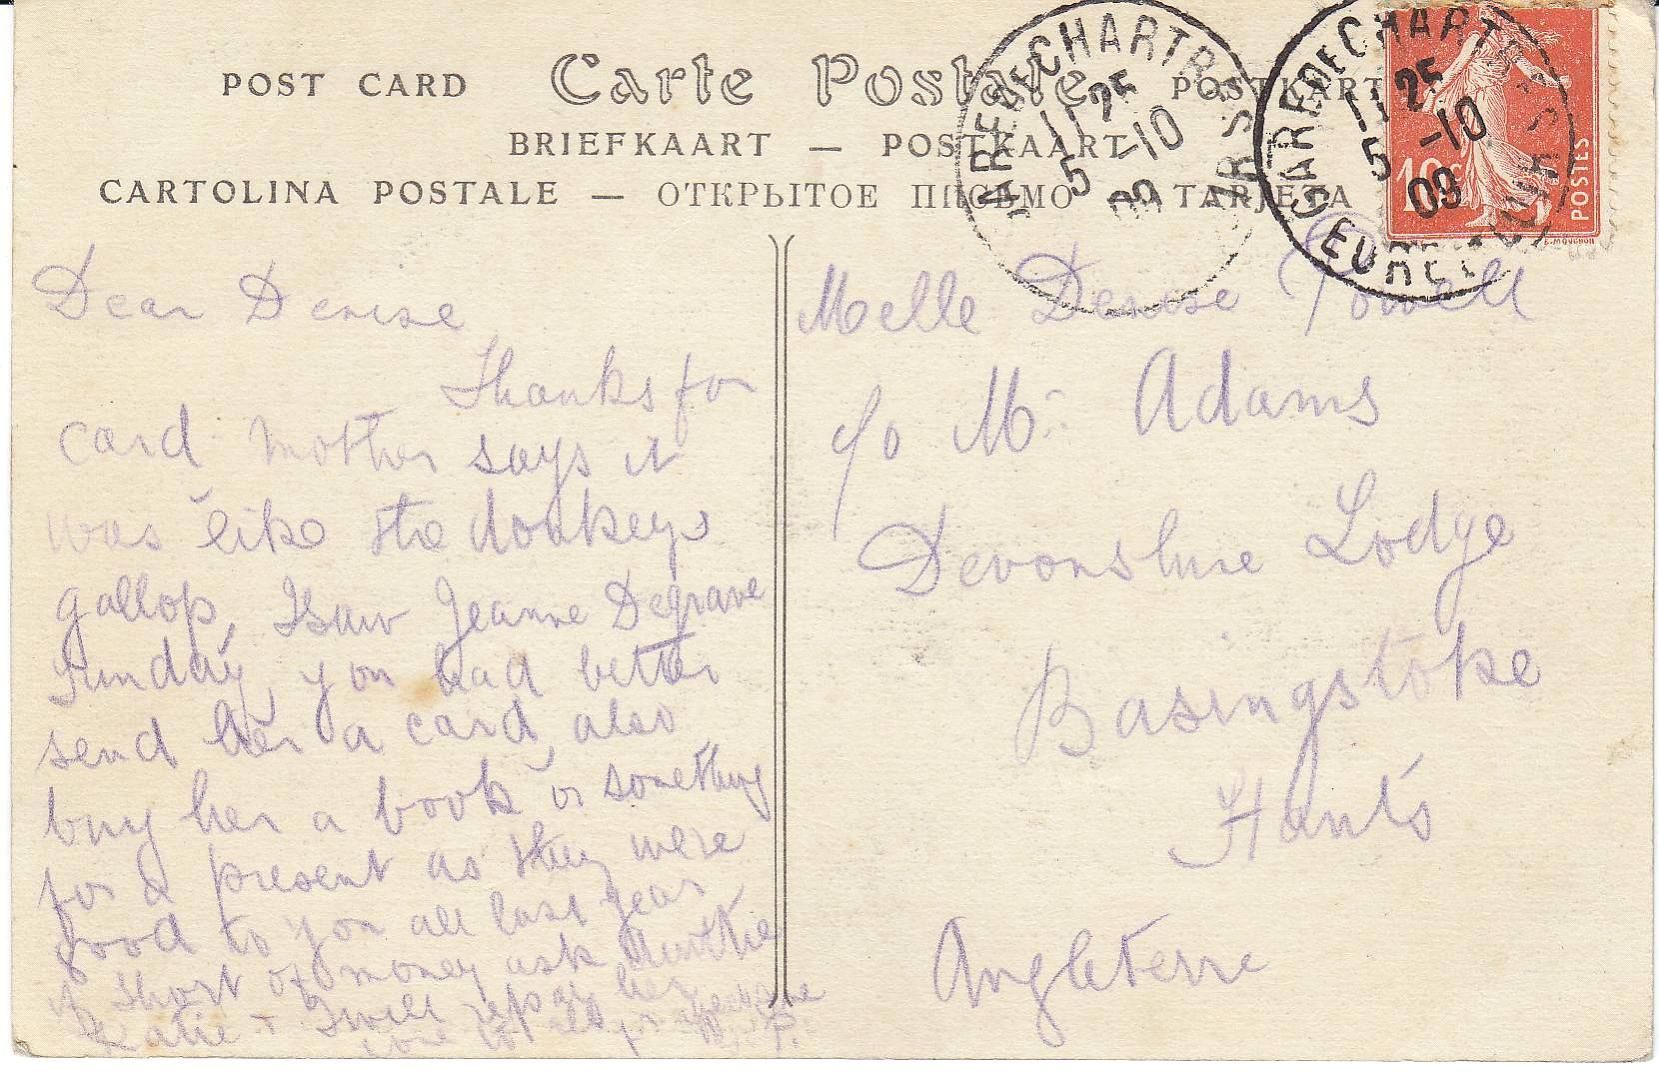 POST CARD Carte Postale POSTKARTE
BRIEFKAART — POSTKAART
CARTOLINA POSTALE — ОТКРЫТОЕ ПИСЬМО — TARJETA
GARE DE CHARTRES
11 25
5 -10
09
GARE DE CHARTRES
11 25
5 -10
09
EURE-ET-
10c
POSTES
E. MOUCHON
Dear Denise
Thanks for
card mother says it
was like the donkeys
gallop, I saw Jeanne Degrave
Sunday, you had better
send her a card, also
buy her a book or something
for a present as they were
good to you all last year
if short of money ask Auntie
Katie + I will repay her
love to all
P.
Melle Denise Powell
c/o Mr Adams
Devonshire Lodge
Basingstoke
Hants
Angleterre